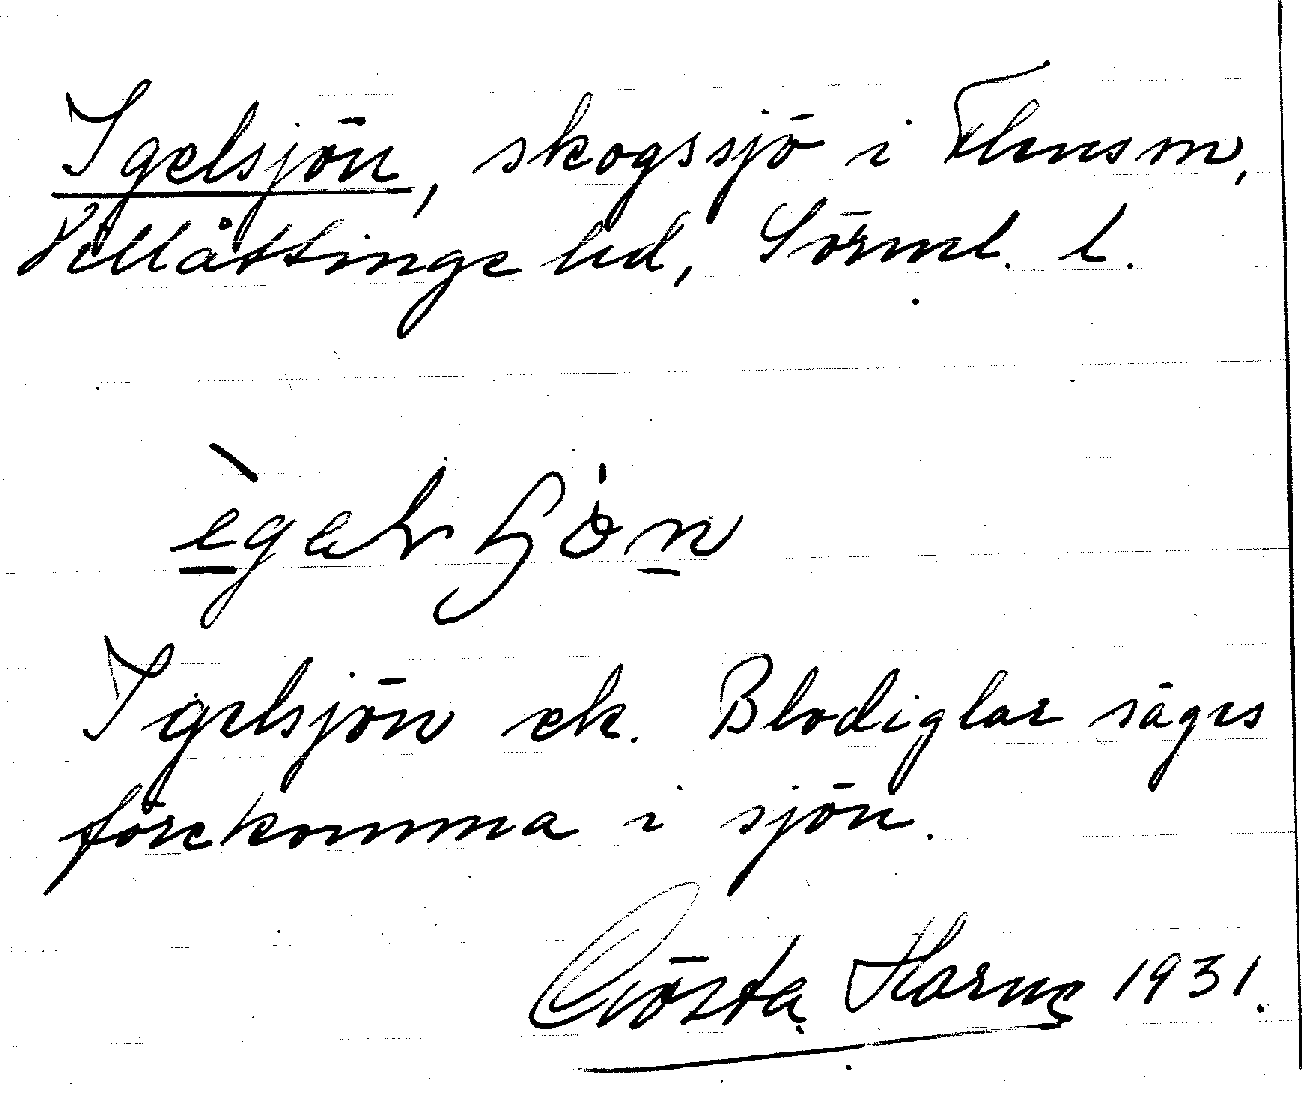 Igelsjön, skogssjö i Flens sn,
Villåttinge hd, Sörml. l.
Igelsjön ek. Blodiglar säges
förekomma i sjön.
Gösta Harne 1931.